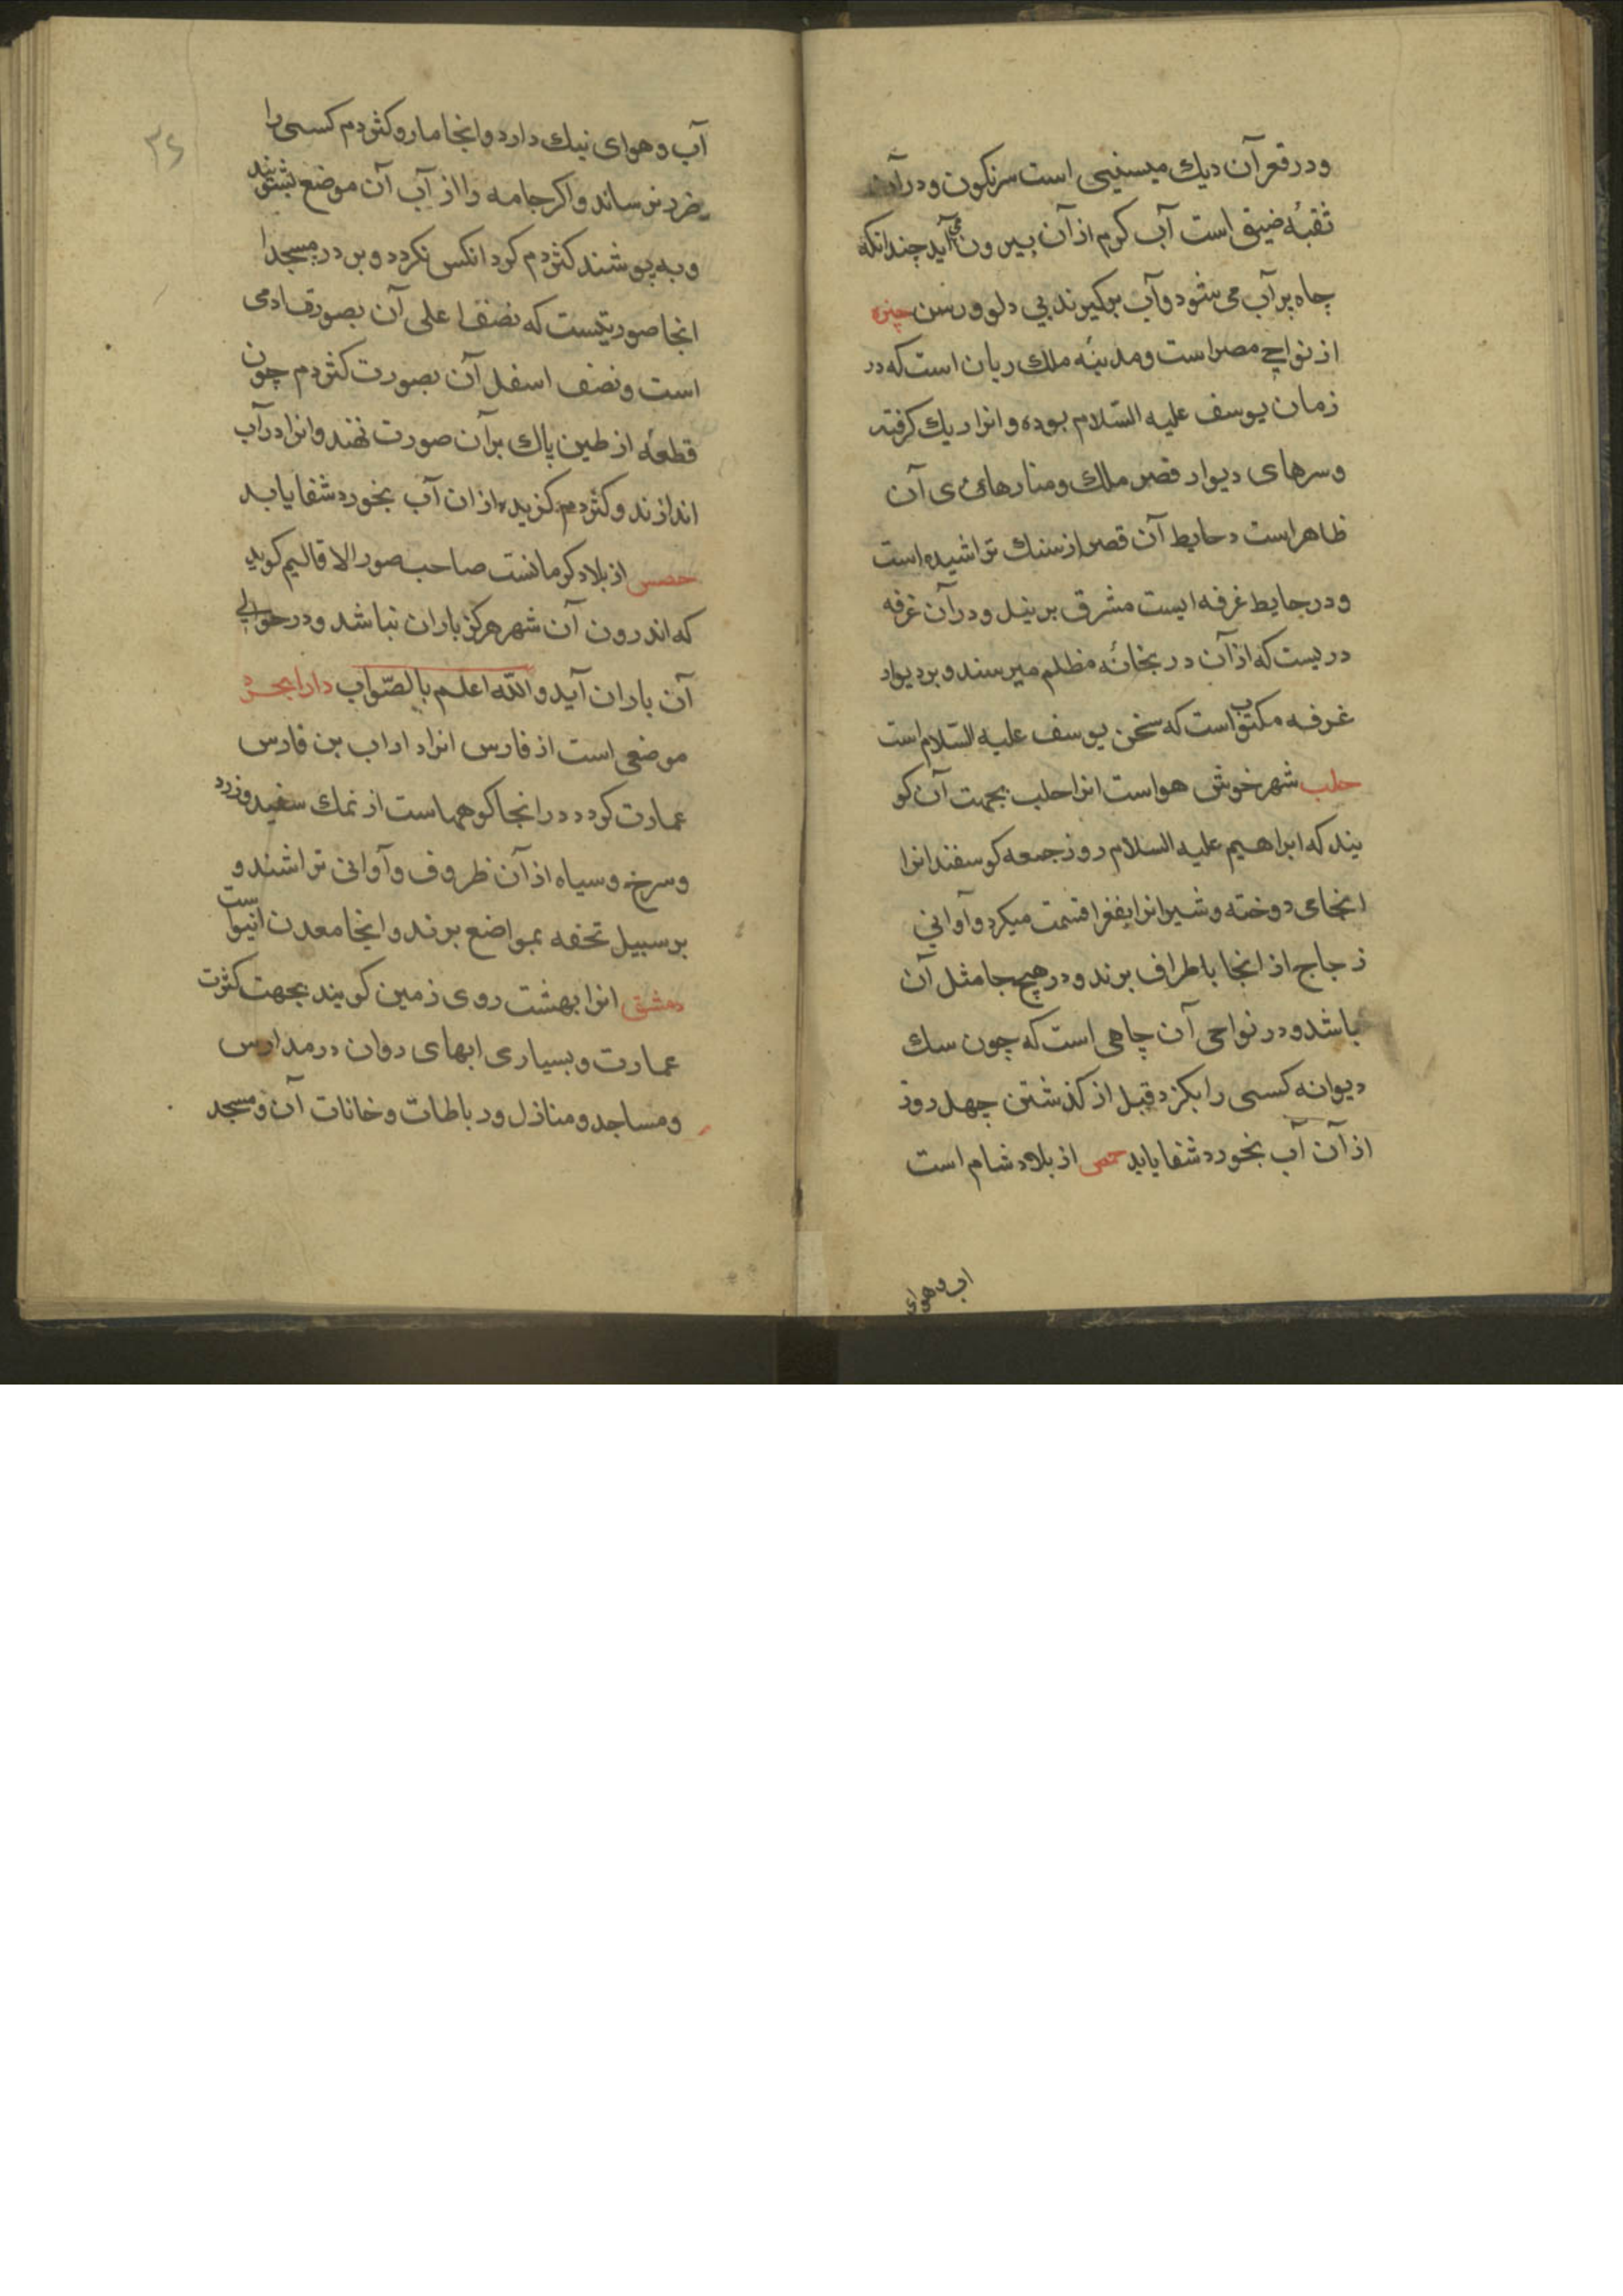 ودر قعر آن ديك ميسنيى است سرنكون ودر آن
ثقبهٔ ضيق است آب كرم از آن بيرون مى آيد چندانكه
چاه پر آب مى شود وآب بركيرند بي دلو ورسن جيزه
از نواحى مصر است ومدينه ملك ريان است كه در
زمان يوسف عليه السّلام بوده وانرا ريك كرفته
وسرهاى ديوار قصر ملك ومنارهاى آن
ظاهر است وحايط آن قصر از سنك تراشيده است
ودر حايط غرفه ايست مشرق بر نيل ودر آن غرفه
دريست كه از آن در بخانهٔ مظلم ميرسند وبر ديوار
غرفه مكتوب است كه سخن يوسف عليه السّلام است
حلب شهر خوش هواست انرا حلب بجهت آن كو
يند كه ابراهيم عليه السلام روز جمعه كوسفندانرا
انجاى دوخته وشير انرا بفقرا قسمت ميكرد وآوانى
زجاج از انجا باطراف برند ودر هيچ جا مثل آن
باشد ودر نواحى آن چاهى است كه چون سك
ديوانه كسى را بكزد قبل از كذشتن چهل روز
از آن آب بخورد شفا يابد حمص از بلاد شام است
اب وهواى
٣٤
آب وهواى نيك دارد وانجا مار وكثردم كسى را
ضرر نرساند واكر جامه را از آب آن موضع بشويند
وبه پوشند كثردم كرد انكس نكردد وبر در مسجد
انجا صورتيست كه نصف اعلى آن بصورت ادمى
است ونصف اسفل آن بصورت كثردم چون
قطعهٔ از طين پاك بر آن صورت نهند وانرا در آب
اندازند وكثردم كزيده از ان آب بخورد شفا يابد
حصس از بلاد كرمانست صاحب صور الاقاليم كويد
كه اندرون آن شهر هركز باران نباشد ودر حوالى
آن باران آيد والله اعلم بالصّواب دارابجرد
موضعى است از فارس انرا داراب بن فارس
عمارت كرد در انجا كوههاست از نمك سفيد وزرد
وسرخ وسياه از آن ظروف وآوانى تراشند و
بر سبيل تحفه بمواضع برند وانجا معدن
دمشق انرا بهشت روى زمين كويند بجهت كثرت
عمارت وبسيارى ابهاى روان در مدارس
ومساجد ومنازل ورباطات وخانات آن ومسجد